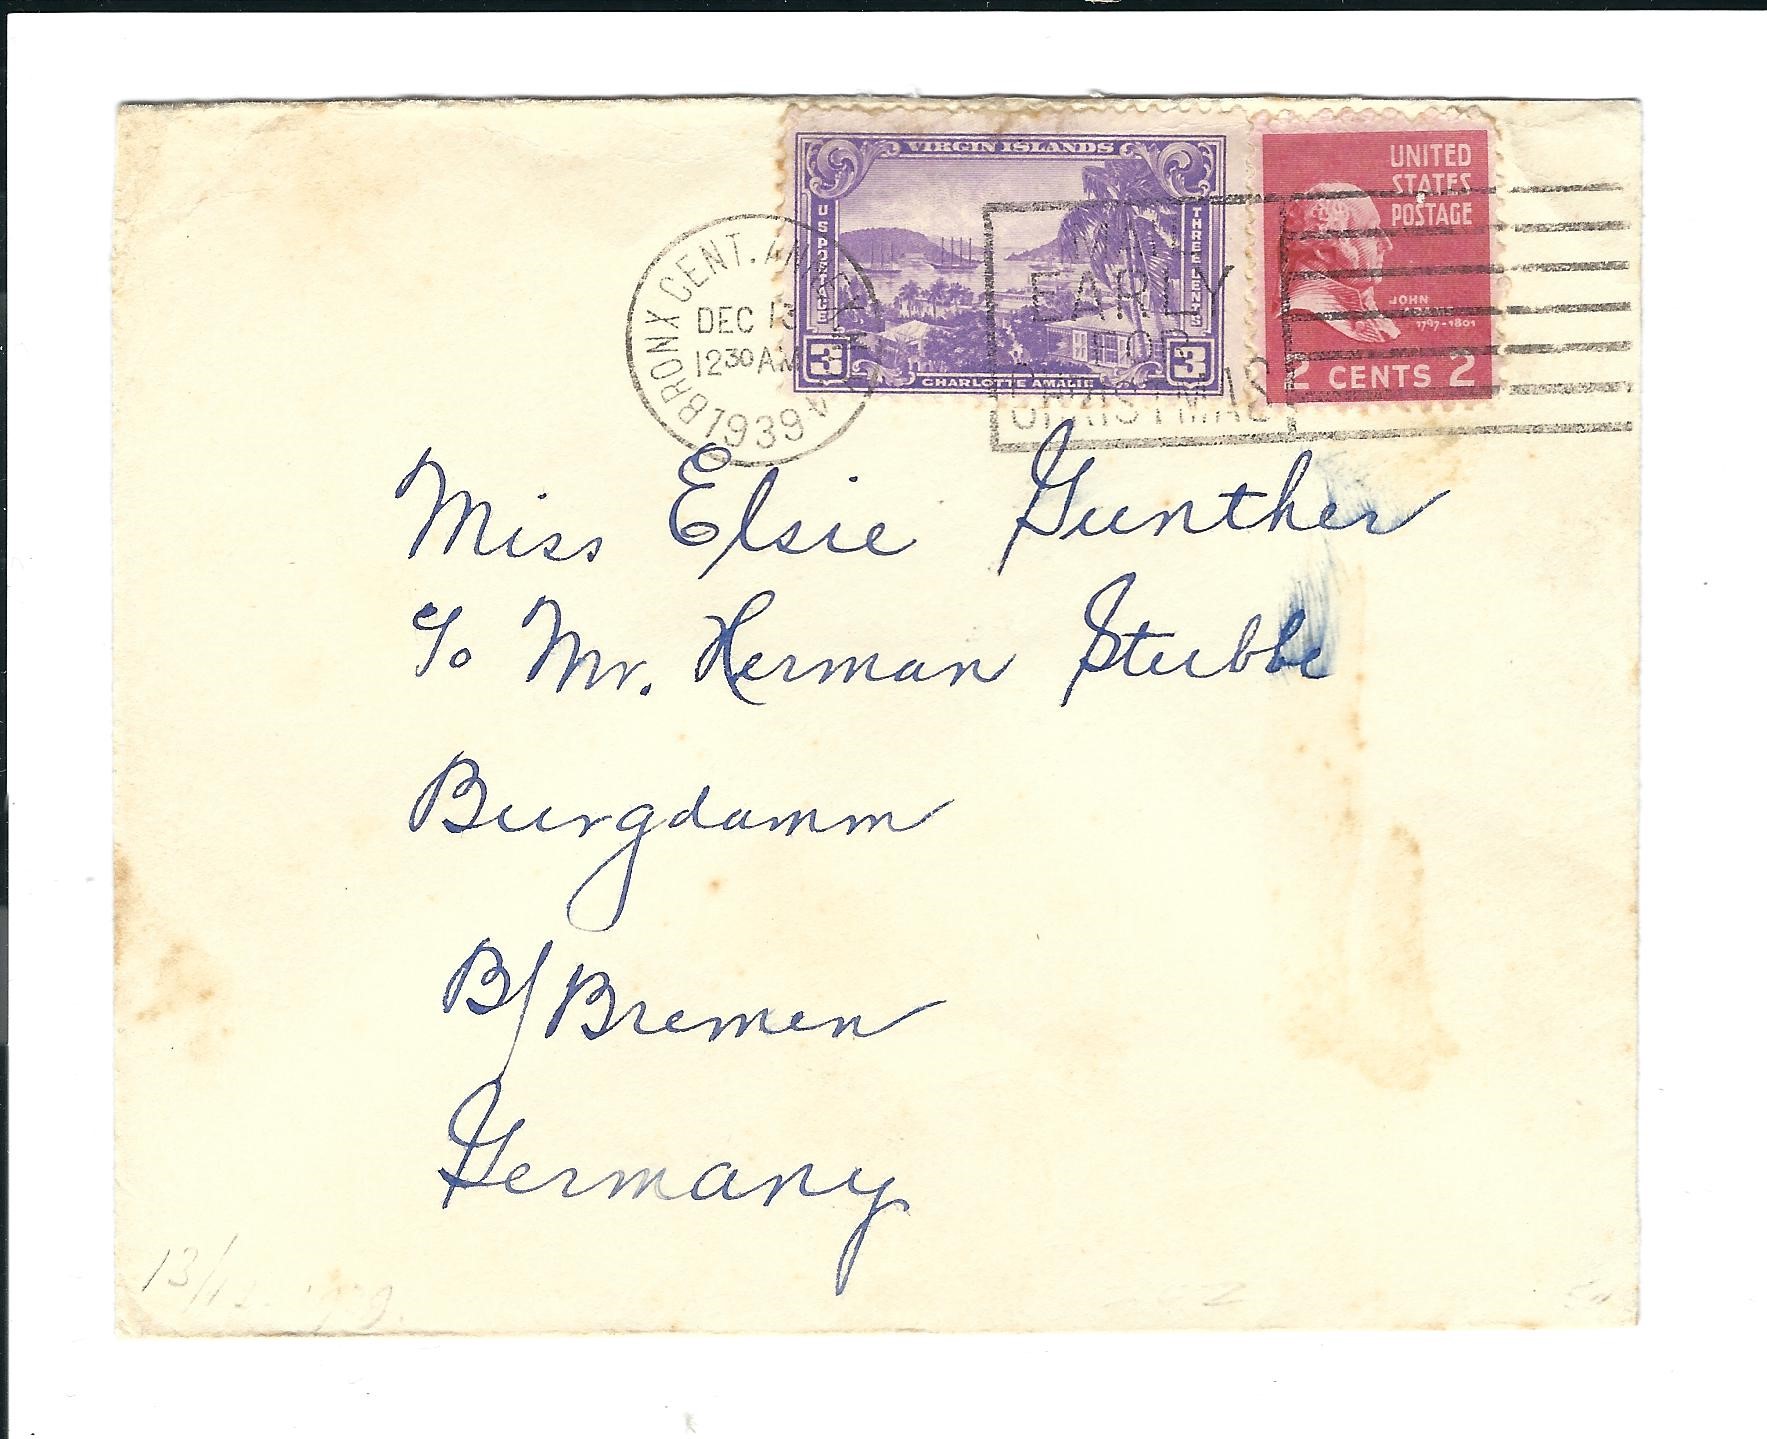 VIRGIN ISLANDS
U S POSTAGE
THREE CENTS
3 3
CHARLOTTE AMALIE
UNITED
STATES
POSTAGE
JOHN
ADAMS
1797-1801
2 CENTS 2
BRONX CENT. ANNEX N.Y.
DEC 13
12 30 AM
1939
MAIL
EARLY
FOR
CHRISTMAS
Miss Elsie Gunther
c/o Mr. Herman Stubbe
Burgdamm
B/Bremen
Germany
13/12